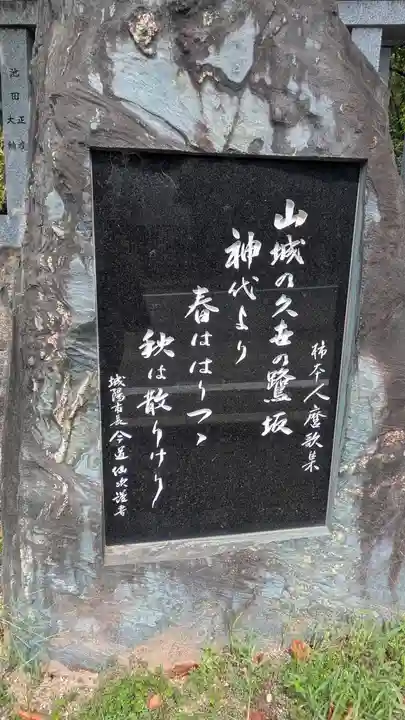 柿本人麿歌集
山城の久世の鷺坂
神代より
春ははりつゝ
秋は散りけり
城陽市長 今道仙次謹書
池田正
大